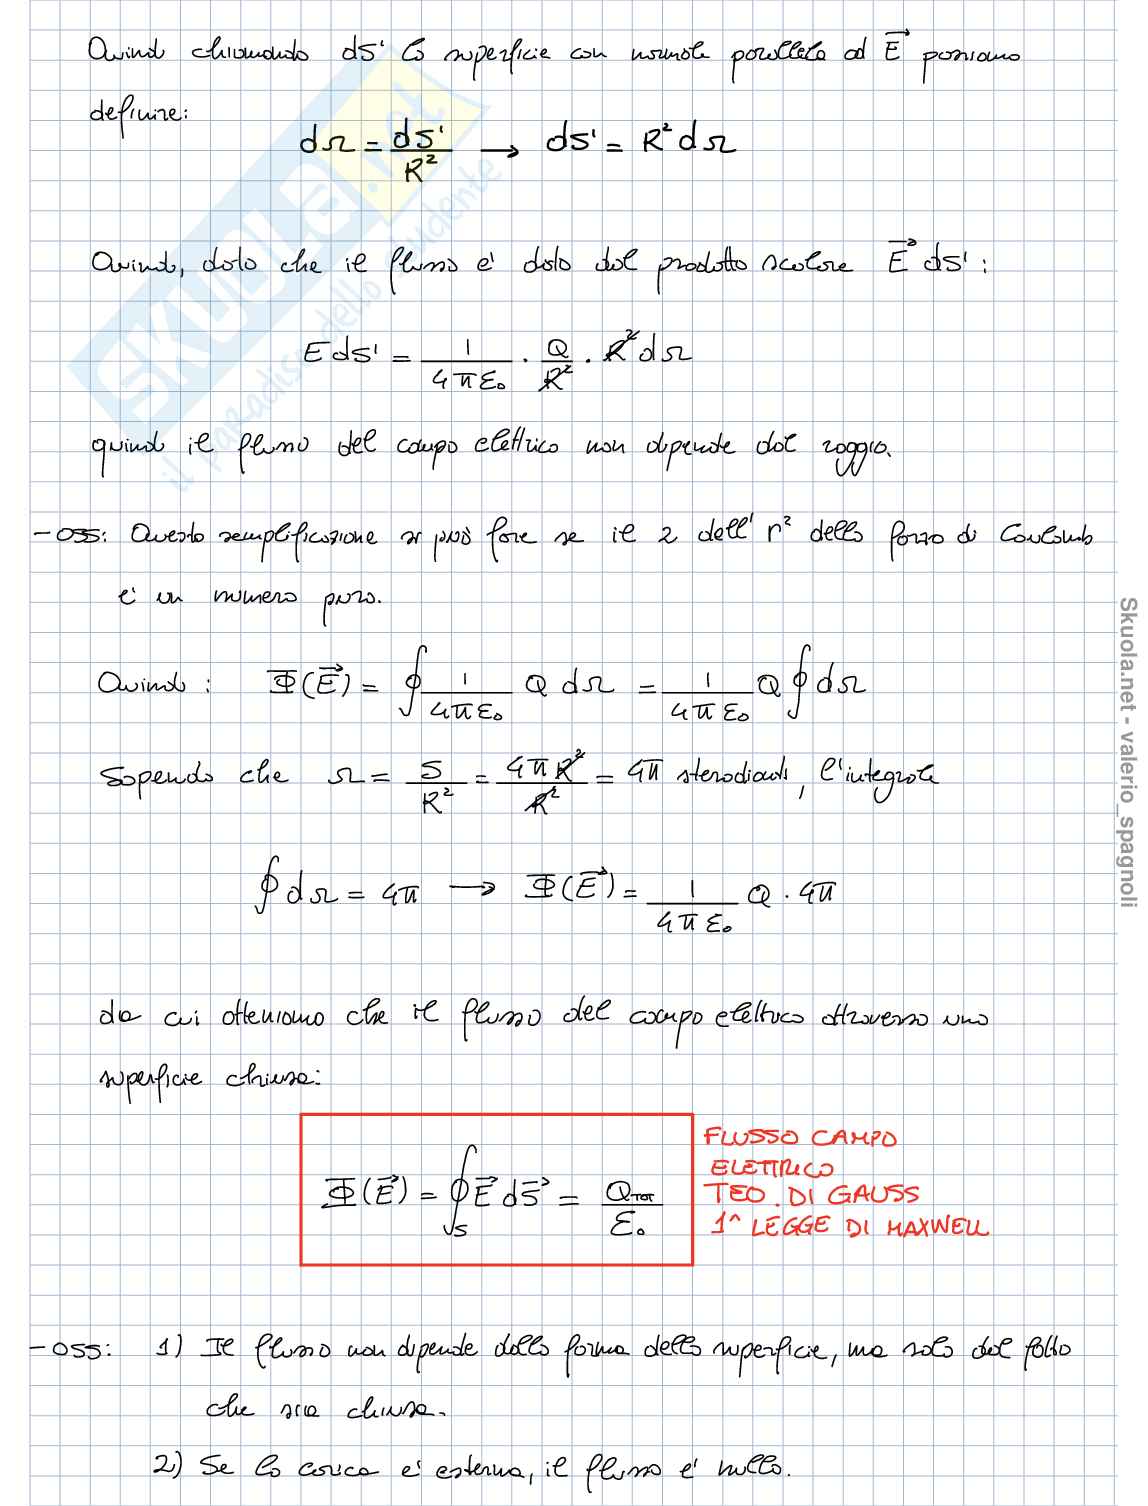 Quindi chiamando dS' la superficie con normale parallela ad E⃗ possiamo
definire:
dΩ = dS'/R² → dS' = R² dΩ
Quindi, dato che il flusso e' dato dal prodotto scalare E⃗ dS':
E dS' = 1/(4πε₀) · Q/R² · R² dΩ
quindi il flusso del campo elettrico non dipende dal raggio.
- OSS: Questa semplificazione si può fare se il 2 dell' r² della forza di Coulomb
e' un numero puro.
Quindi: Φ(E⃗) = ∮ 1/(4πε₀) Q dΩ = 1/(4πε₀) Q ∮ dΩ
Sapendo che Ω = S/R² = 4πR²/R² = 4π steradianti, l'integrale
∮ dΩ = 4π → Φ(E⃗) = 1/(4πε₀) Q · 4π
da cui otteniamo che il flusso del campo elettrico attraverso una
superficie chiusa:
Φ(E⃗) = ∮_S E⃗ dS⃗ = Q_TOT/ε₀
FLUSSO CAMPO
ELETTRICO
TEO. DI GAUSS
1^ LEGGE DI MAXWELL
- OSS: 1) Il flusso non dipende dalla forma della superficie, ma solo dal fatto
che sia chiusa.
2) Se la carica e' esterna, il flusso e' nullo.
SKUOLA.net
il paradiso dello studente
Skuola.net - valerio_spagnoli